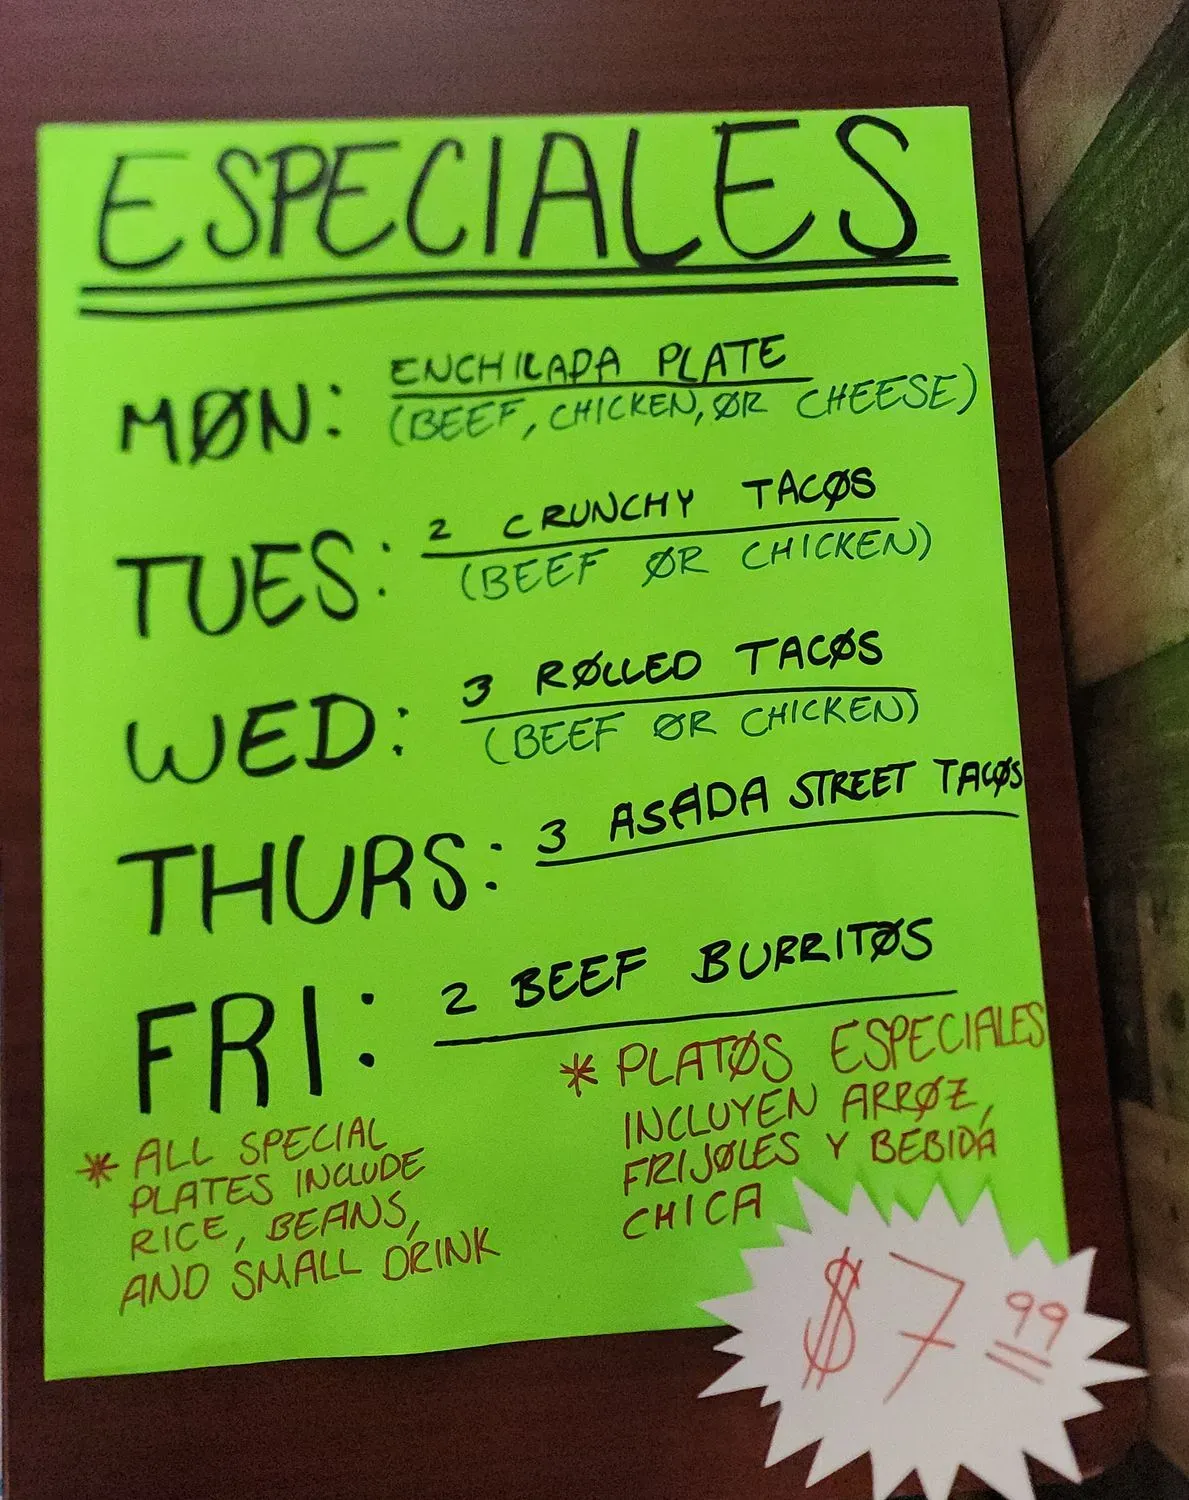 ESPECIALES
MØN: ENCHILADA PLATE
(BEEF, CHICKEN, ØR CHEESE)
TUES: 2 CRUNCHY TACØS
(BEEF ØR CHICKEN)
WED: 3 RØLLED TACØS
(BEEF ØR CHICKEN)
THURS: 3 ASADA STREET TACØS
FRI: 2 BEEF BURRITØS
* ALL SPECIAL
PLATES INCLUDE
RICE, BEANS,
AND SMALL DRINK
* PLATØS ESPECIALES
INCLUYEN ARRØZ,
FRIJØLES Y BEBIDA
CHICA
$7 99